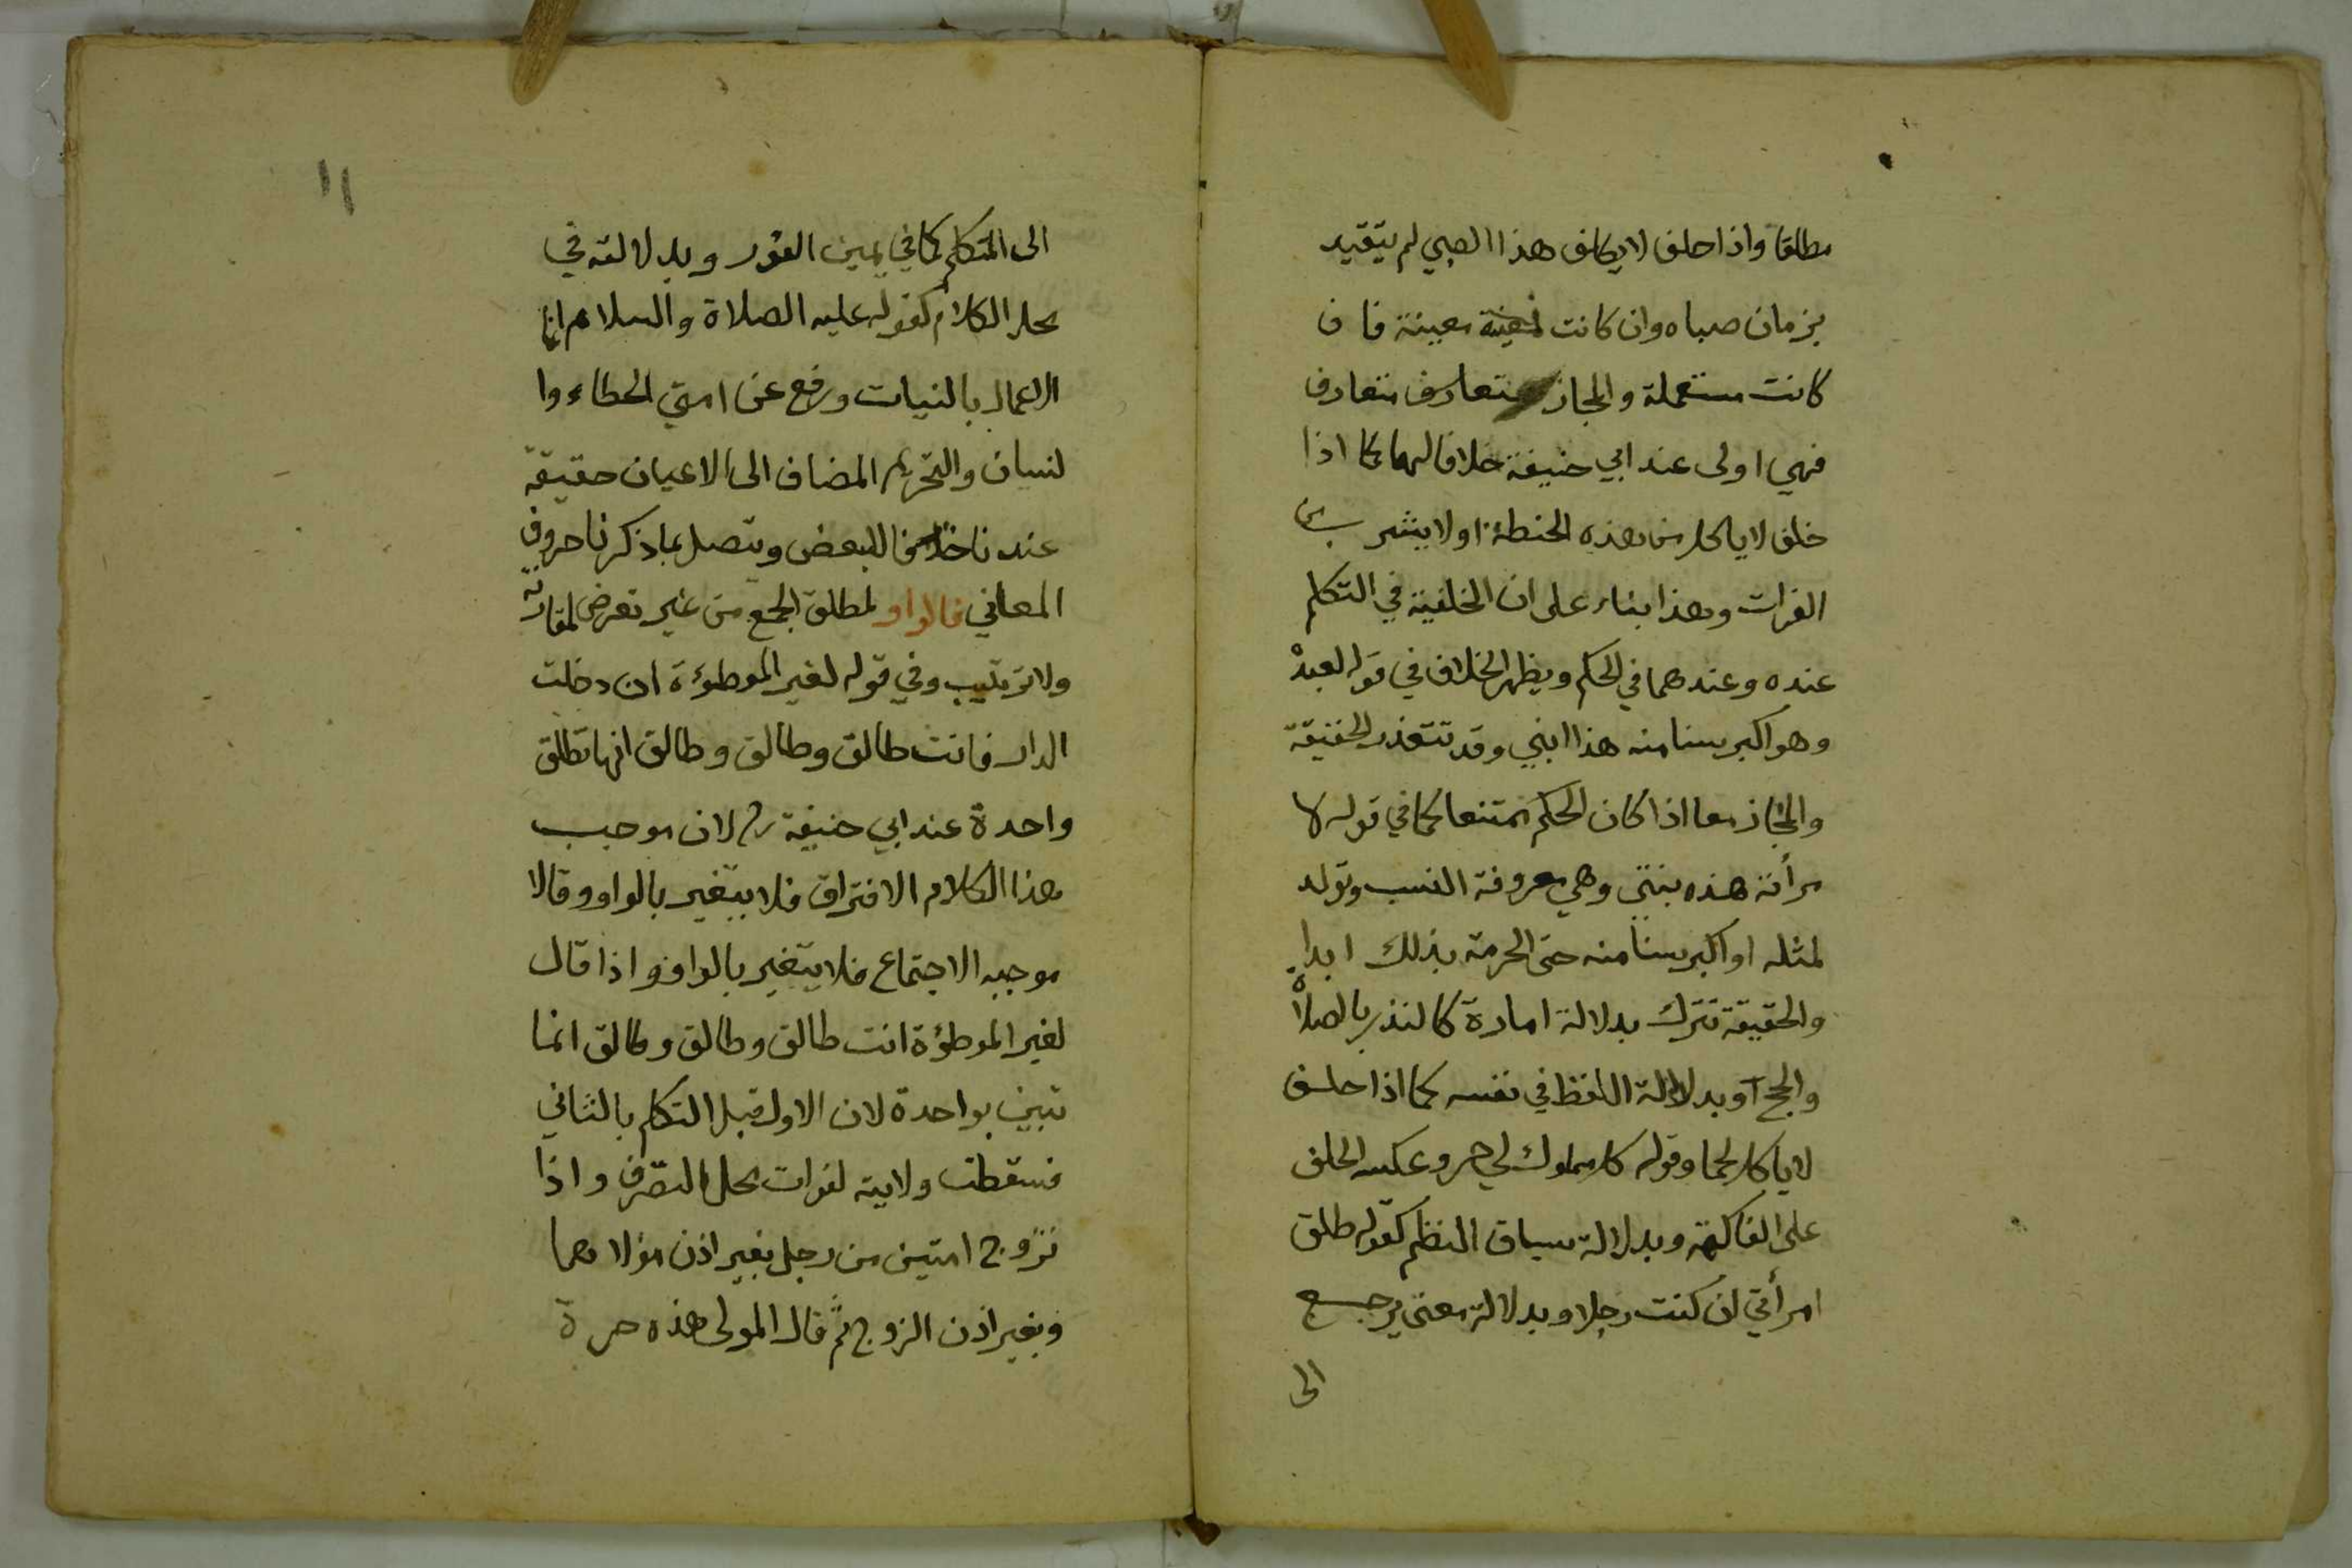 مطلقا واذا حلف لا يكلف هذا الصبي لم يتقيد
بزمان صباه وان كانت معينة فان
كانت مستعملة والمجاز متعارف متعارف
فهي اولى عند ابي حنيفة خلافا لهما كما اذا
حلف لا ياكل من هذه الحنطة او لا يشرب من
الفرات وهذا بناء على ان الخلفية في التكلم
عنده وعندهما في الحكم ويظهر الخلاف في قوله لعبد
وهو اكبر سنا منه هذا ابني وقد تتعذر الحقيقة
والمجاز معا اذا كان الحكم ممتنعا كما في قوله لا
مرأته هذه بنتي وهي معروفة النسب وتولد
لمثله او اكبر سنا منه حتى الحرمة بذلك ابدا
والحقيقة تترك بدلالة امادة كالنذر بالصلاة
والحج او بدلالة اللفظ في نفسه كما اذا حلف
لا ياكل لحما وقوله كل مملوك لي حر وعكسه الحلف
على الفاكهة وبدلالة سياق النظم كقوله طلق
امرأتي ان كنت رجلا وبدلالة معنى يرجع
الى
١١
الى المتكلم كما في يمين الفور وبدلالته في
محل الكلام كقوله عليه الصلاة والسلام انما
الاعمال بالنيات ورفع عن امتي الخطاء وا
لنسيان والتحريم المضاف الى الاعيان حقيقة
عندنا خلافا للبعض ويتصل بما ذكرنا حروف
المعاني فالواو لمطلق الجمع من غير تعرض لمقارنة
ولا ترتيب وفي قوله لغير الموطوءة ان دخلت
الدار فانت طالق وطالق وطالق انها تطلق
واحدة عند ابي حنيفة رح لان موجب
هذا الكلام الافتراق فلا يتغير بالواو وقالا
موجبه الاجتماع فلا يتغير بالواو واذا قال
لغير الموطؤة انت طالق وطالق وطالق انما
تبين بواحدة لان الاول قبل التكلم بالثاني
فسقطت ولايته لفوات محل التصرف واذا
تزوج امتين من رجل بغير اذن مولاهما
وبغير اذن الزوج ثم قال المولى هذه حرة